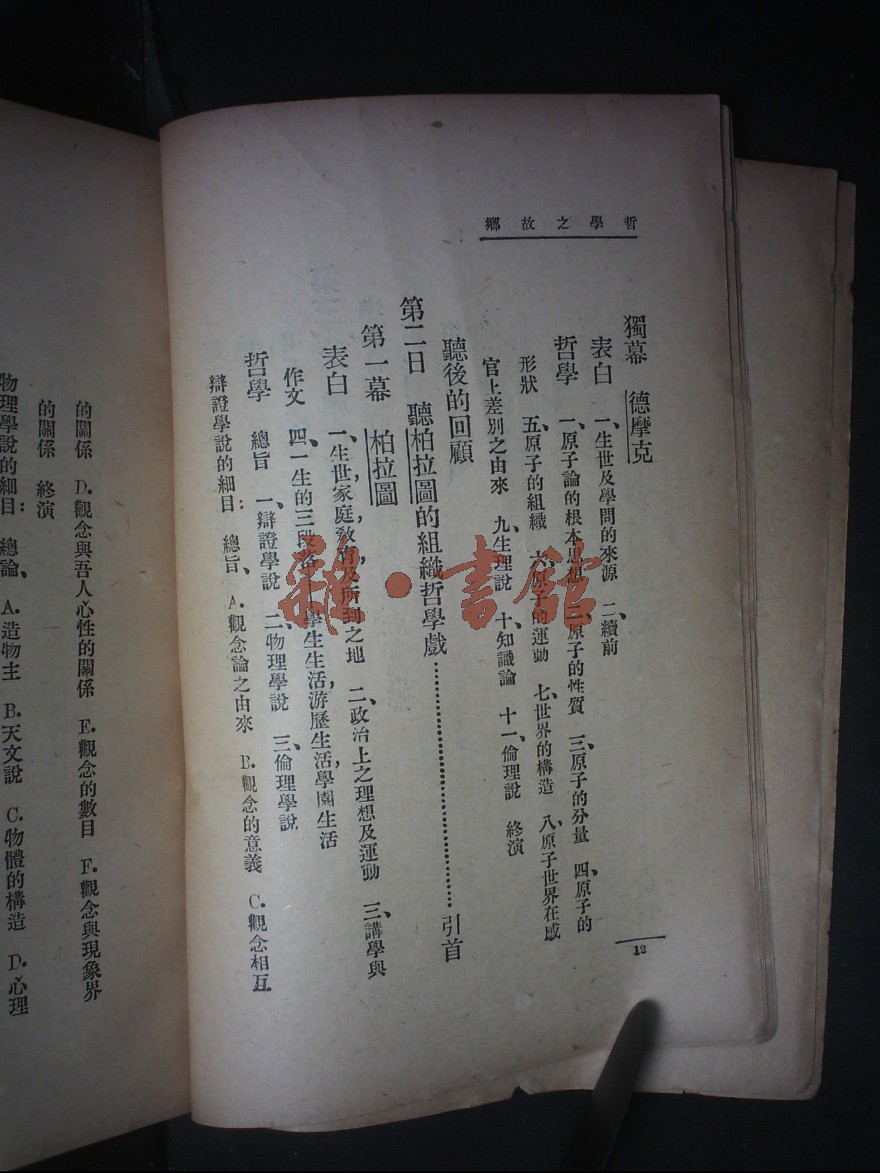 哲學之故鄉
獨幕 德摩克
表白 一、生世及學問的來源 二、續前
哲學 一、原子論的根本思想 二、原子的性質 三、原子的分量 四、原子的
形狀 五、原子的組織 六、原子的運動 七、世界的構造 八、原子世界在感
官上差別之由來 九、生理說 十、知識論 十一、倫理說 終演
聽後的回顧
第二日 聽柏拉圖的組織哲學戲……………………引首
第一幕 柏拉圖
表白 一、生世，家庭，敎育及所到之地 二、政治上之理想及運動 三、講學與
作文 四、一生的三段落—學生生活，游歷生活，學園生活
哲學 總旨 一、辯證學說 二、物理學說 三、倫理學說
辯證學說的細目：總旨、A. 觀念論之由來 B. 觀念的意義 C. 觀念相互
12
的關係 D. 觀念與吾人心性的關係 E. 觀念的數目 F. 觀念與現象界
的關係 終演
物理學說的細目：總論、A. 造物主 B. 天文說 C. 物體的構造 D. 心理
雜·書館